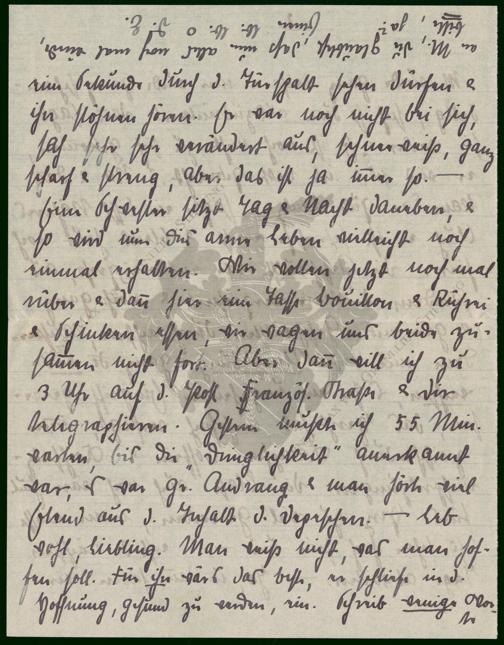 eine Sekunde durch d. Türspalt sehen dürfen &
ihn stöhnen hören. Er war noch nicht bei sich,
sah sehr verändert aus, schneeweiß, ganz
scharf & streng, aber das ist ja immer so. —
Eine Schwester sitzt Tag & Nacht daneben, &
so wird nun das arme Leben vielleicht noch
einmal erhalten. Wir wollen jetzt noch mal
rüber & dann hier eine Tasse bouillon & Rührei
& Schinken essen, wir wagen uns beide zu-
sammen nicht fort. Aber dann will ich zu
3 Uhr auf d. Post Französ. Straße & dir
telegraphieren. Gestern mußte ich 55 Min.
warten, bis die „Dringlichkeit" anerkannt
war, es war gr. Andrang & man hört viel
Elend aus d. Inhalt d. Depeschen. — Leb
wohl, Liebling. Man weiß nicht, was man hof-
fen soll. Für ihn wärs das beste, er schliefe in d.
Hoffnung, gesund zu werden, ein. Schreib wenige Wor-
te
an M., du glaubtest, daß nun alles noch mal
bitte, ja?